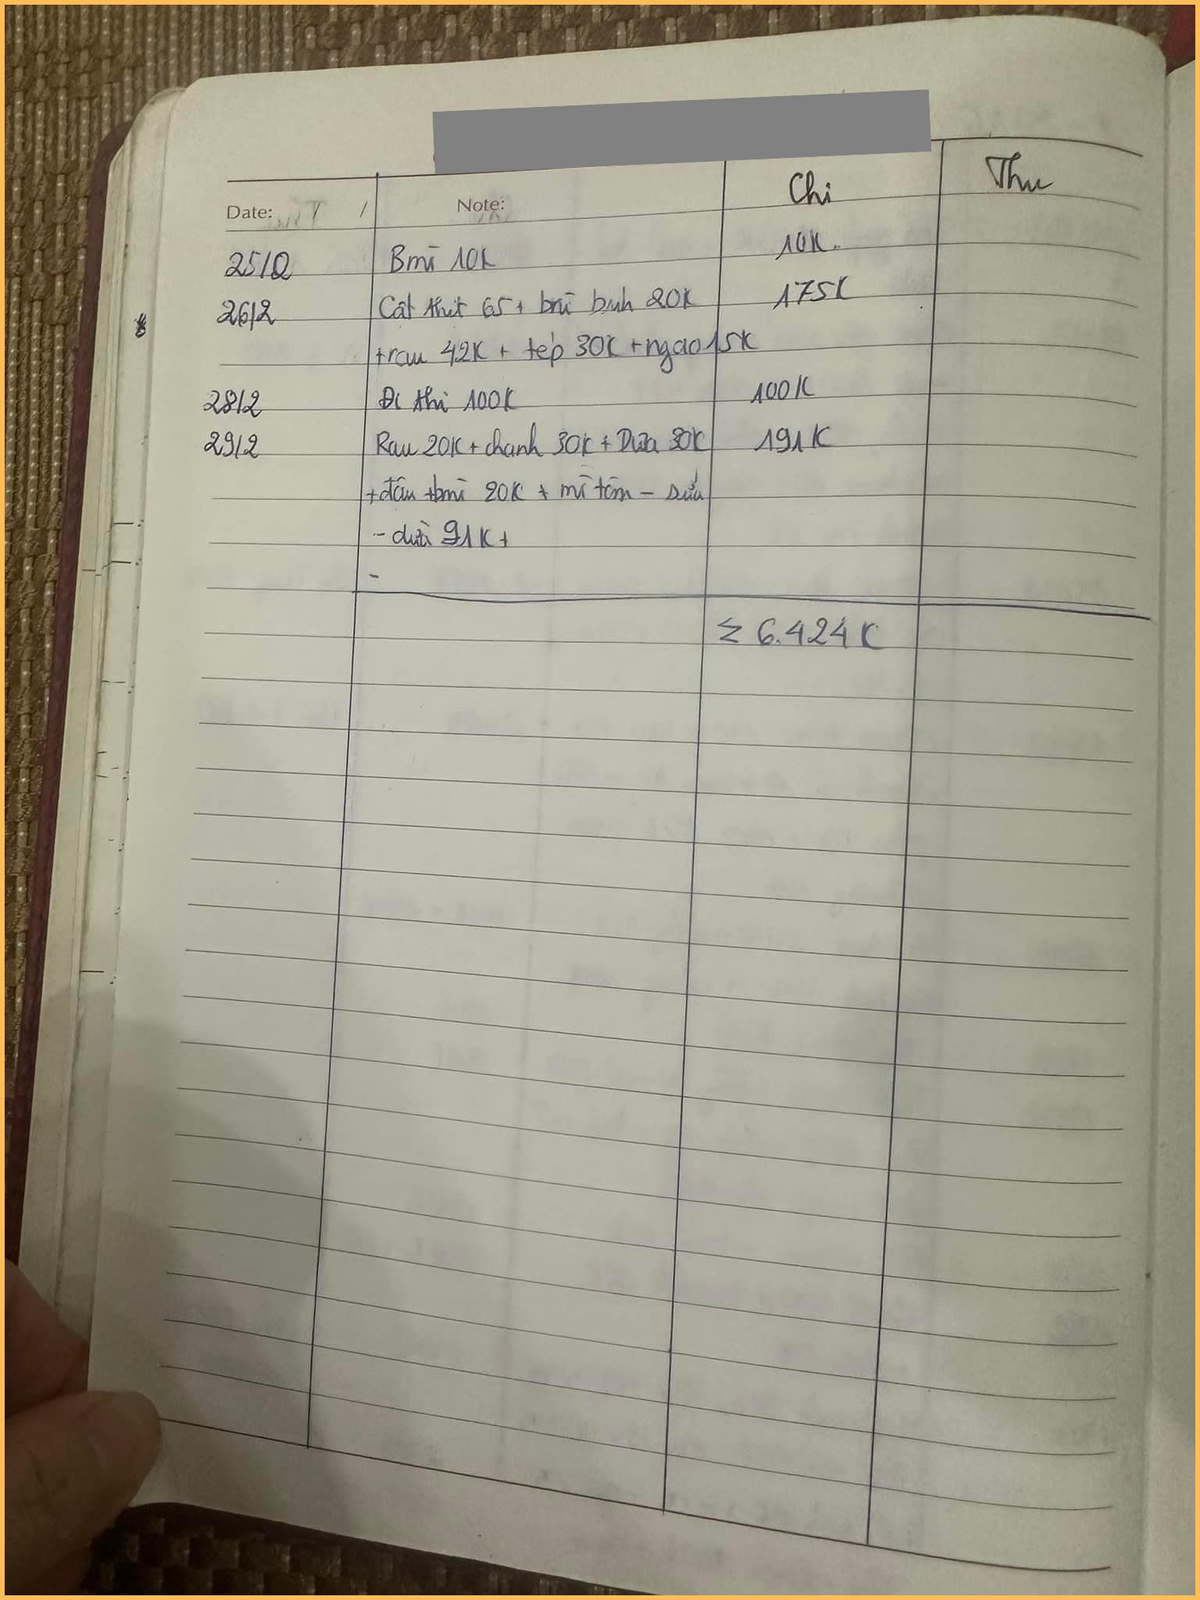 Chi Thu
Date: / Note:
25/2 Bmì 10K 10K.
26/2 Cất thịt 65 + bmì bình 20K 175K
+ rau 42K + tép 30K + ngao 15K
28/2 Đi thi 100K 100K
29/2 Rau 20K + chanh 30K + Dưa 30K 191K
+ đậu + bmì 20K + mì tôm - sữa
- dưa 91K +
-
Σ 6.424K